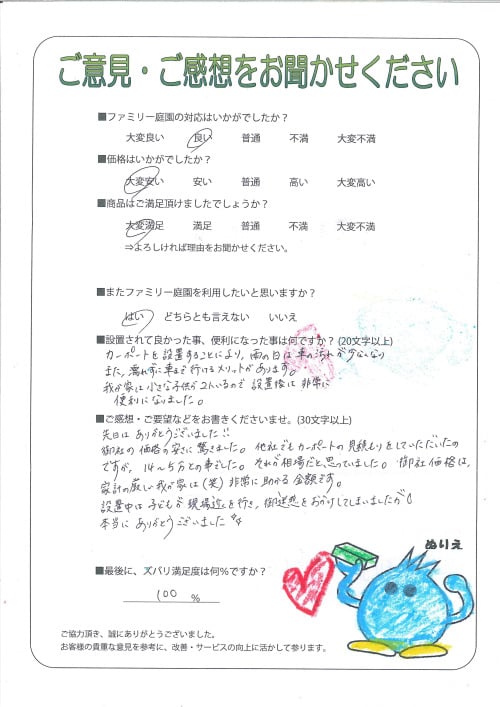 ご意見・ご感想をお聞かせください
■ファミリー庭園の対応はいかがでしたか？
大変良い 良い 普通 不満 大変不満
■価格はいかがでしたか？
大変安い 安い 普通 高い 大変高い
■商品はご満足頂けましたでしょうか？
大変満足 満足 普通 不満 大変不満
⇒よろしければ理由をお聞かせください。
■またファミリー庭園を利用したいと思いますか？
はい どちらとも言えない いいえ
■設置されて良かった事、便利になった事は何ですか？(20文字以上)
カーポートを設置することにより、雨の日は車の汚れが少なくなり
また、濡れずに車まで行けるメリットがあります。
我が家は小さな子供が2人いるので設置後は非常に
便利になりました。
■ご感想・ご要望などをお書きくださいませ。(30文字以上)
先日はありがとうございました!!
御社の価格の安さに驚きました。他社でもカーポートの見積もりをしていただいたの
ですが、14〜5万との事でした。それが相場だと思っていました。御社価格は、
家計の厳しい我が家は(笑)非常に助かる金額です。
設置中は子どもが現場近を行き、御迷惑をおかけしてしまいましたが
本当にありがとうございました
■最後に、ズバリ満足度は何％ですか？
100 %
ぬりえ
ご協力頂き、誠にありがとうございました。
お客様の貴重な意見を参考に、改善・サービスの向上に活かして参ります。